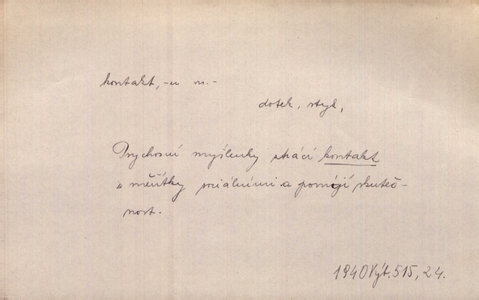 kontakt, -u m.-
dotek, styk,
Psychosní myšlenky ztrácí kontakt
s měřítky sociálními a pomíjí skuteč-
nost.
1940 Výt. 515, 24.